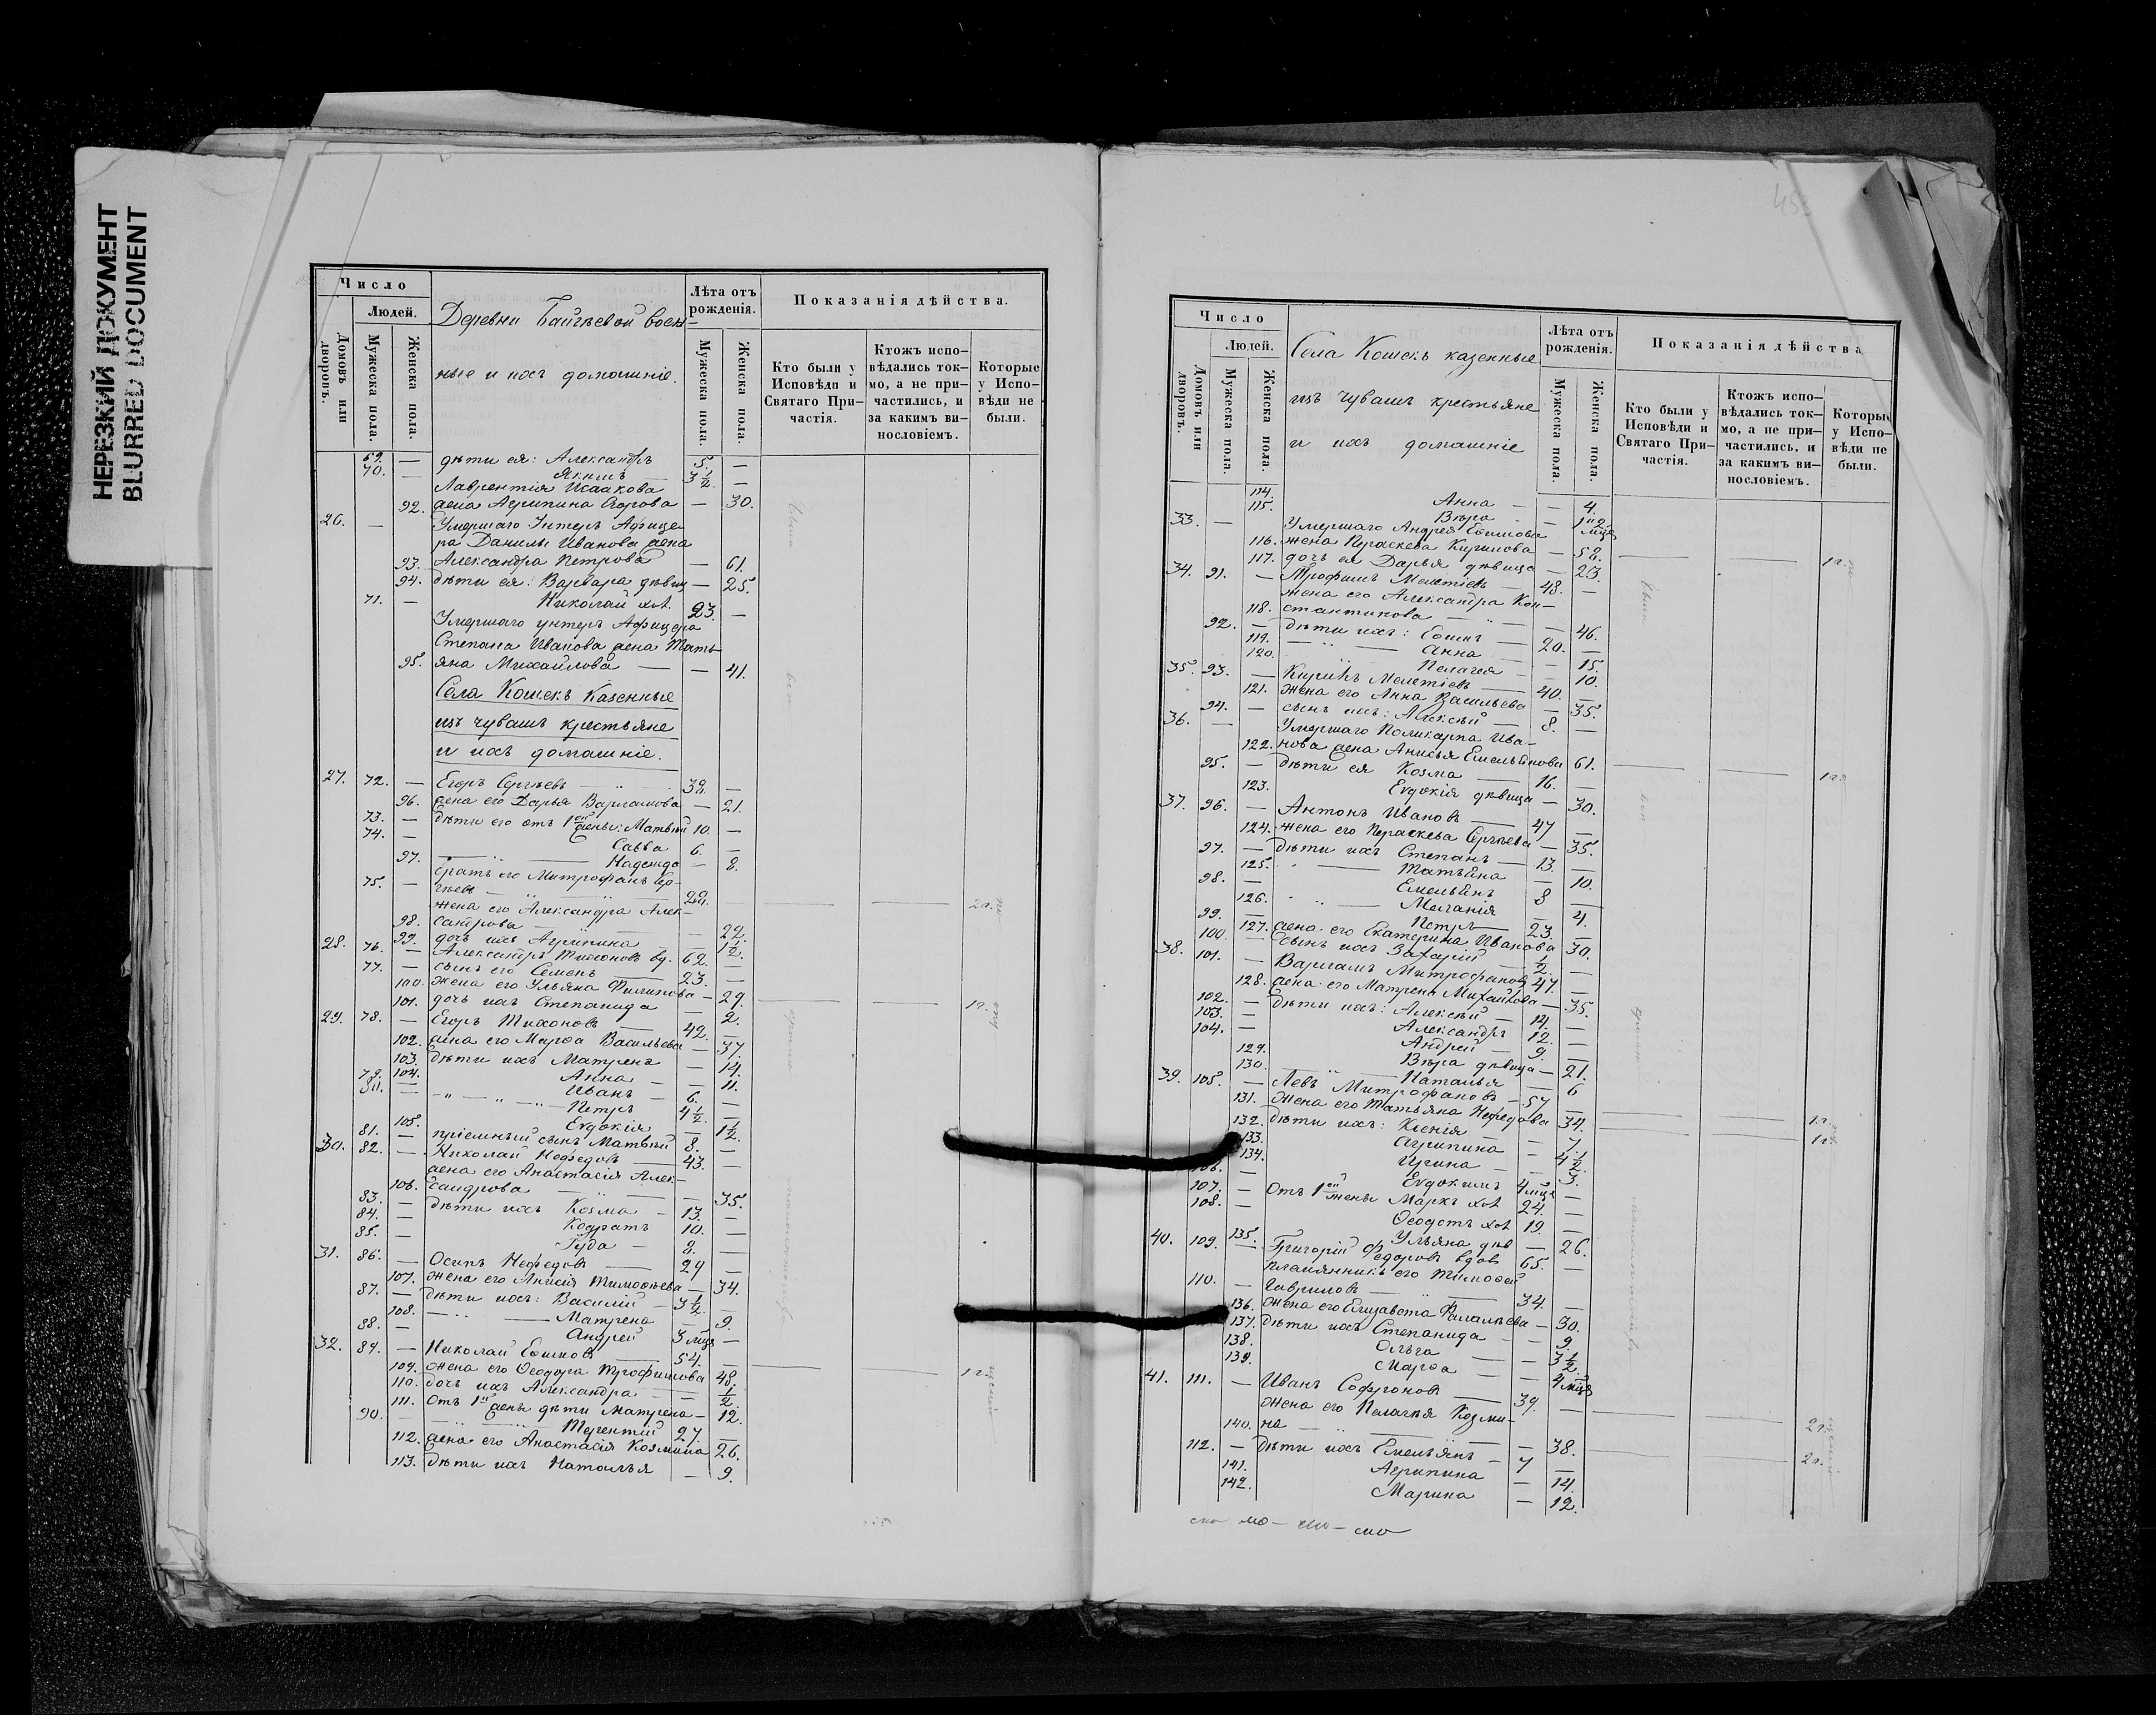 НЕРЕЗКИЙ ДОКУМЕНТ
BLURRED DOCUMENT
Число
Людей.
Домовъ или дворовъ.
Мужеска пола.
Женска пола.
Деревни Байгѣевой воен-
ные и ихъ домашніе.
Лѣта отъ рожденія.
Мужеска пола.
Женска пола.
Показанія дѣйства.
Кто были у Исповѣди и Святаго При-частія.
Ктожъ испо-вѣдались ток-мо, а не при-частились, и за какимъ ви-нословіемъ.
Которые у Испо-вѣди не были.
69. — дѣти ея: Александръ 5. —
70. — Якимъ 3 ½. —
Лаврентія Исаакова
92. жена Агрипина Егорова — 30.
26. — Умершаго Унтеръ Афице-
ра Данилы Иванова жена
93. Александра Петрова — 61.
94. дѣти ея: Варвара дѣвиц — 25.
71. — Николай хол. 23. —
Умершаго унтеръ Афицера
Степана Иванова жена Тать-
95. яна Михайлова — — 41.
Села Кошекъ Казенные
изъ чувашъ крестьяне
и ихъ домашніе.
27. 72. — Егоръ Сергѣевъ — 32. —
96. жена его Дарья Варламова — 21.
73. — дѣти его отъ 1ой жены: Матвѣй 10. —
74. — Савва 6. —
97. Надежда — 8.
братъ его Митрофанъ Сер-
75. — гѣевъ — 22. —
жена его Александра Алек-
98. сандрова — — 22.
99. дочь ихъ Агрипина — 1 ½.
28. 76. — Александръ Тихоновъ вд. 62. —
77. — сынъ его Семенъ — 23. —
100. жена его Ульяна Филипова — 29.
101. дочь ихъ Степанида — 2.
29. 78. — Егоръ Тихоновъ — 42. —
102. жена его Марѳа Васильева — 37.
103. дѣти ихъ Матрена — 14.
104. Анна — — 11.
79. — Иванъ — 6. —
80. — Петръ 4 ½ —
105. Евдокія — 1 ½.
81. — пріемный сынъ Матвѣй 8. —
30. 82. — Николай Нефедовъ — 43. —
жена его Анастасія Алек-
106. сандрова — — 35.
83. — дѣти ихъ Козма — 13. —
84. — Кодратъ 10. —
85. — Іуда — 2. —
31. 86. — Осипъ Нефедовъ — 29 —
107. жена его Анисія Тимоѳѣева — 34.
87. — дѣти ихъ: Василій — 3 ½. —
108. Матрена — 9.
88. — Андрей 3 мѣс —
32. 89. — Николай Ефимовъ — 54. —
109. жена его Ѳеодора Трофимова 48.
110. дочь ихъ Александра — ½
111. Отъ 1ой жены дѣти Матрена — 12.
90. — Терентій 27. —
112. жена его Анастасія Козмина 26.
113. дѣти ихъ Наталья — 9.
Число
Людей.
Домовъ или дворовъ.
Мужеска пола.
Женска пола.
Села Кошекъ казенные
изъ чувашъ крестьяне
и ихъ домашніе
Лѣта отъ рожденія.
Мужеска пола
Женска пола.
Показанія дѣйства
Кто были у Исповѣди и Святаго При-частія.
Ктожъ испо-вѣдались ток-мо, а не при-частились, и за какимъ ви-нословіемъ.
Которые у Испо-вѣди не были.
114. Анна — — 4.
115. Вѣра — —
33. — Умершаго Андрея Ефимова
116. жена Параскева Кирилова — 58.
117. дочь ея Дарья дѣвица — 23.
34. 91. — Трофимъ Мелетіевъ — 48. —
жена его Александра Кон-
118. стантинова — — 46.
92. — дѣти ихъ: Ефимъ — 20. —
119. Анна — 15.
120. Пелагея — — 10.
35. 93. — Кирилъ Мелетіевъ — 40. —
121. жена его Анна Васильева — 35.
94. — сынъ ихъ: Алексѣй — 8. —
36. — Умершаго Поликарпа Ива-
122. нова жена Анисья Емельянова 61.
95. — дѣти ея Козма — 16. —
123. Евдокія дѣвица — 30.
37. 96. — Антонъ Ивановъ — 47 —
124. жена его Параскева Сергѣева — 35.
97. — дѣти ихъ Степанъ — 13. —
125. Татьяна — 10.
98. — Емельянъ 8 —
126. Меланія — 4.
99. — Петръ — 23. —
127. жена его Екатерина Иванова 30.
100. — сынъ ихъ Захарій — ½ —
38. 101. — Варламъ Митрофановъ 47. —
128. жена его Матрена Михайлова — 35.
102. — дѣти ихъ: Алексѣй — 14. —
103. — Александръ 12. —
104. — Андрей — 9 —
129. Вѣра дѣвица — 21.
130. Наталья — 6
39. 105. — Левъ Митрофановъ — 57 —
131. жена его Татьяна Нефедова 34.
132. дѣти ихъ: Ксенія — 7.
133. Агрипина — 4 ½
134. Ирина — — 3.
106. — Евдокимъ 4 мѣс —
107. — Отъ 1ой жены Маркъ хол 24. —
108. — Ѳеодотъ хол 19. —
135. Ульяна дѣв — 26.
40. 109. — Григорій Федоровъ вдов 65. —
племянникъ его Тимоѳей
110. — Гавриловъ — 34. —
136. жена его Елизавета — 30.
137. дѣти ихъ Степанида — — 9.
138. Ольга — — 3 ½
139. Марѳа — — 4 мѣс
41. 111. — Иванъ Софроновъ — 39. —
жена его Пелагѣя Козми-
140. на — — 38.
112. — дѣти ихъ Емельянъ — 7 —
141. Агрипина — 14.
142. Марина — 12.